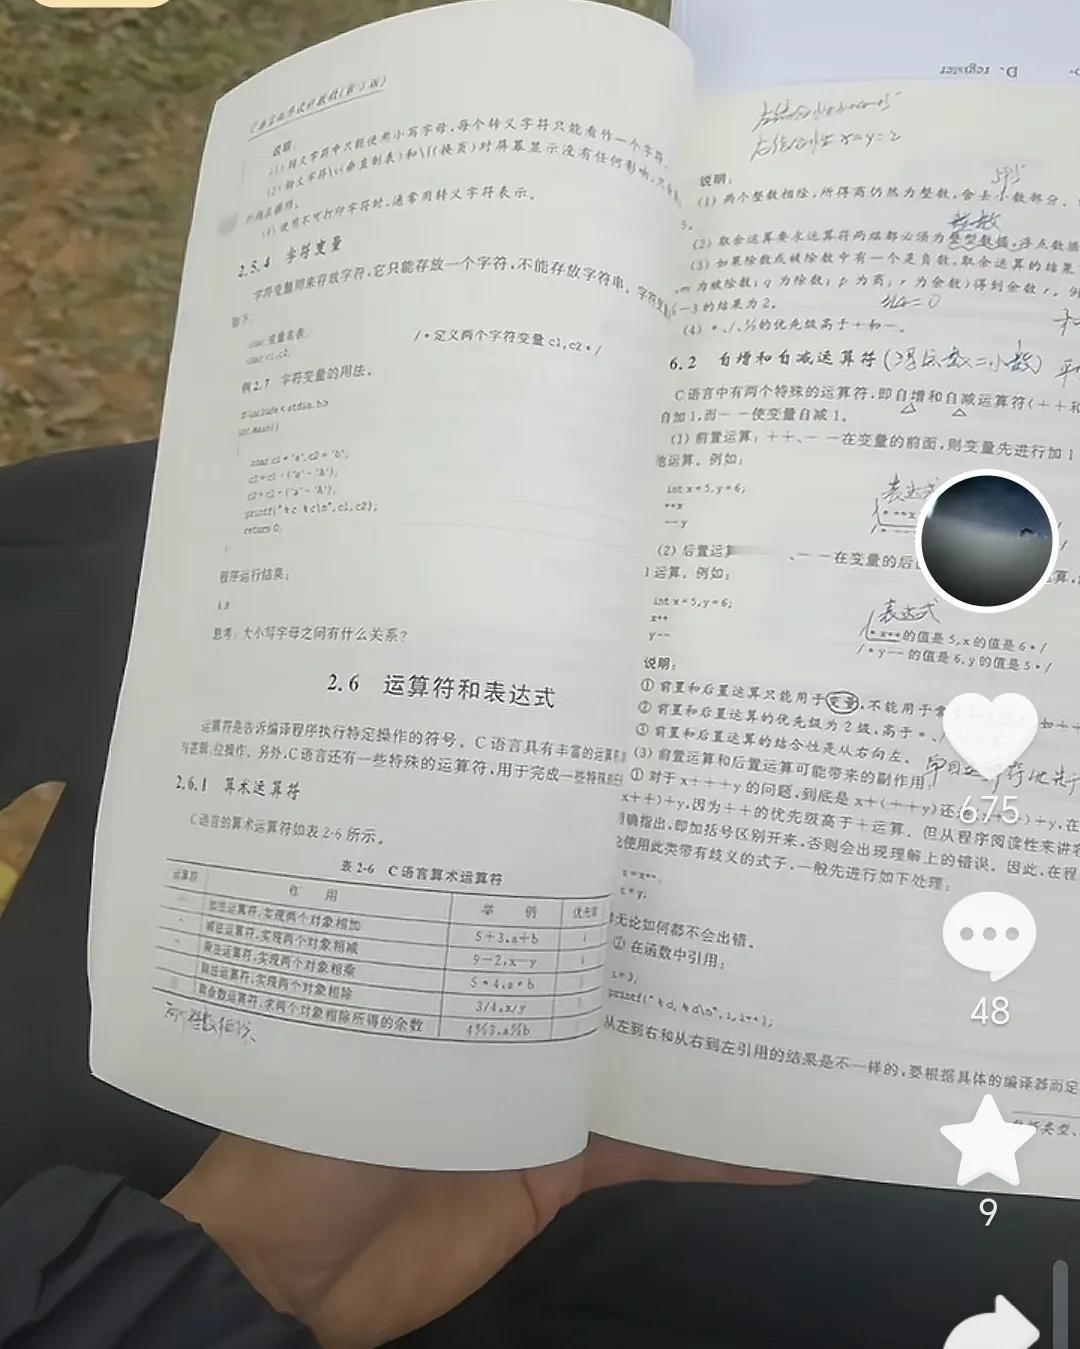 说明：
(1) 转义字符中只能使用小写字母，每个转义字符只能看作一个字符。
(2) 转义字符\v(垂直制表)和\f(换页)对屏幕显示没有任何影响，
(3) 使用不可打印字符时，通常用转义字符表示。
2.5.4 字符变量
字符变量用来存放字符，它只能存放一个字符，不能存放字符串。字符变
如下：
char 变量名表；
char c1,c2; /*定义两个字符变量 c1,c2*/
例 2.7 字符变量的用法。
#include<stdio.h>
int main()
char c1='a',c2='b';
c1=c1-('a'-'A');
c2=c2-('a'-'A');
printf("%c %c\n",c1,c2);
return 0;
}
程序运行结果：
思考：大小写字母之间有什么关系？
2.6 运算符和表达式
运算符是告诉编译程序执行特定操作的符号。C 语言具有丰富的运算符
位操作。另外，C 语言还有一些特殊的运算符，用于完成一些特殊的任
2.6.1 算术运算符
C 语言的算术运算符如表 2-6 所示。
表 2-6 C 语言算术运算符
运算符 作 用 举 例 优先级
加法运算符，实现两个对象相加 5+3,a+b
减法运算符，实现两个对象相减 9-2,x-y
乘法运算符，实现两个对象相乘 5*4,a*b
除法运算符，实现两个对象相除 3/4,x/y
取余数运算符，求两个对象相除所得的余数 4%3,a%b
D. register
左结合性 x=y=2
说明：
(1) 两个整数相除，所得商仍然为整数，舍去小数部分。
5。
(2) 取余运算要求运算符两端都必须为整型数据，浮点数据
(3) 如果除数或被除数中有一个是负数，取余运算的结果
m 为被除数；q 为除数；p 为商；r 为余数)得到余数 r。例
-3 的结果为 2。
(4) *、/、%的优先级高于+和-。
6.2 自增和自减运算符 (浮点数=小数)
C 语言中有两个特殊的运算符，即自增和自减运算符(++和
自加 1，而--使变量自减 1。
(1) 前置运算：++、--在变量的前面，则变量先进行加 1
他运算。例如：
int x=5,y=6;
++x
--y
表达式
(2) 后置运算
、--在变量的后
1 运算。例如：
int x=5,y=6;
表达式
x++ /*x++的值是 5,x 的值是 6*/
y-- /*y--的值是 6,y 的值是 5*/
说明：
① 前置和后置运算只能用于变量，不能用于常
② 前置和后置运算的优先级为 2 级，高于*、/
③ 前置和后置运算的结合性是从右向左。
(3) 前置运算和后置运算可能带来的副作用
① 对于 x+++y 的问题，到底是 x+(++y)还
x++)+y，因为++的优先级高于+运算。但从程序阅读性来讲
明确指出，即加括号区别开来，否则会出现理解上的错误。因此，在程
使用此类带有歧义的式子，一般先进行如下处理：
无论如何都不会出错。
② 在函数中引用：
i=3;
printf("%d, %d\n",i,i++);
从左到右和从右到左引用的结果是不一样的，要根据具体的编译器而定
675
48
9